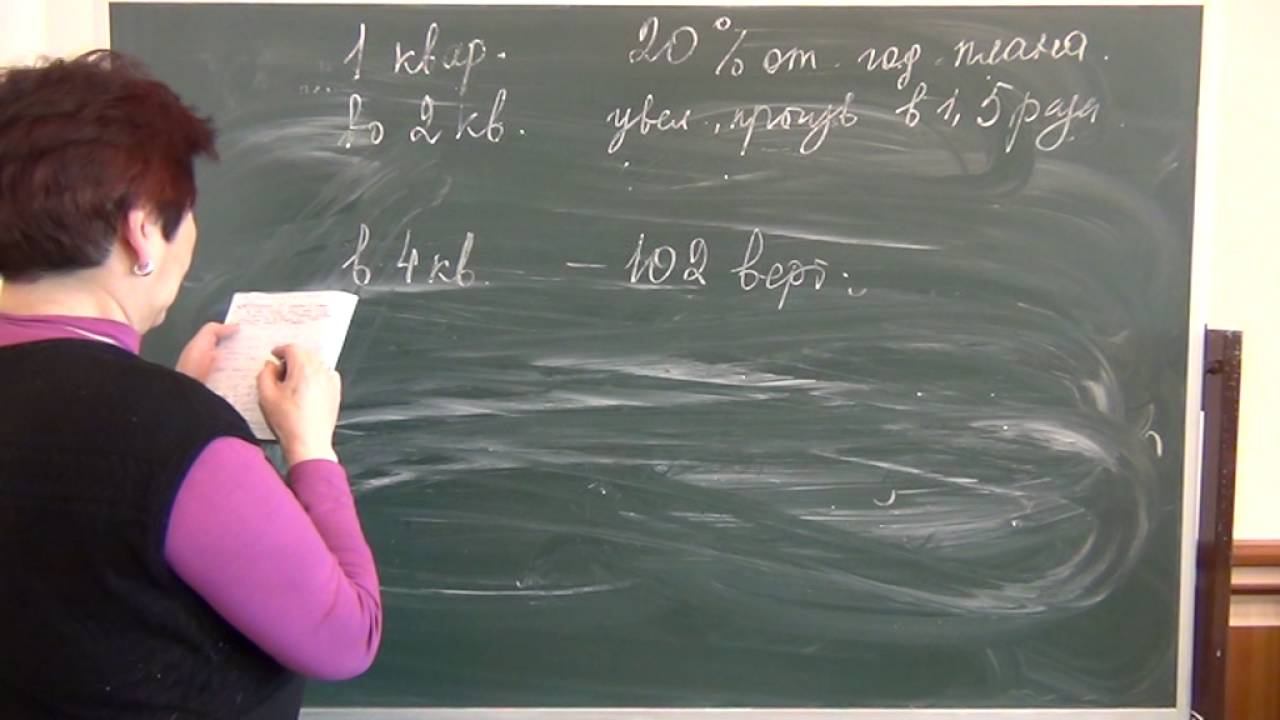 1 квар. 20% от год. плана.
Во 2 кв. увел. произв в 1,5 раза.
в 4 кв. – 102 верт.